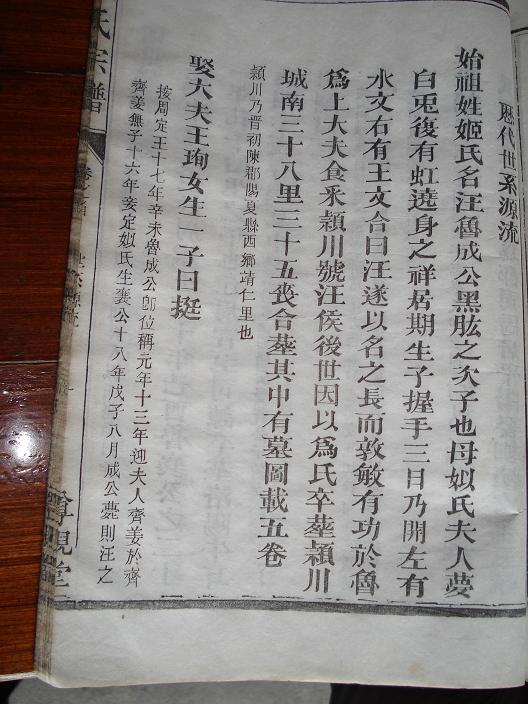 歷代世系源流
始祖姓姬氏名汪魯成公黑肱之次子也母姒氏夫人夢
白兎後有虹遶身之祥居期生子握手三日乃開左有
水文右有王文合曰汪遂以名之長而敦敏有功於魯
爲上大夫食采潁川號汪侯後世因以爲氏卒塟潁川
城南三十八里三十五喪合塟其中有墓圖載五卷
潁川乃晋初陳郡陽夏縣西鄉靖仁里也
娶大夫王珣女生一子曰挺
按周定王十七年辛未魯成公卽位稱元年十三年迎夫人齊姜於齊
齊姜無子十六年妾定姒氏生襄公十八年戊子八月成公薨則汪之
氏宗譜